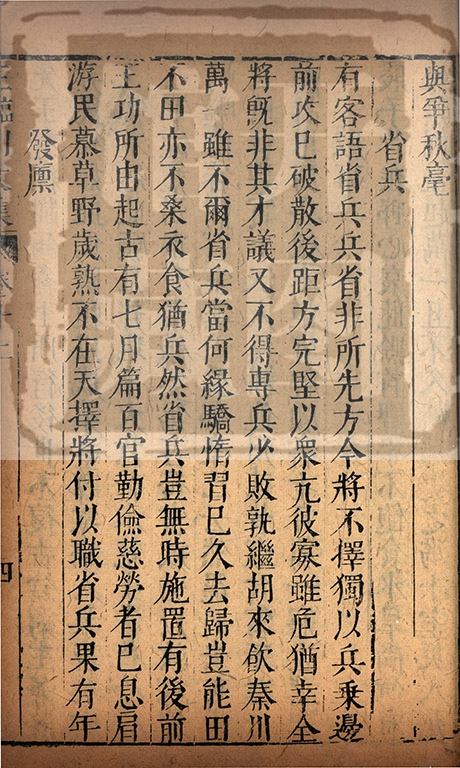 與爭秋毫
省兵
有客語省兵兵省非所先方今將不擇獨以兵乗邊
前攻已破散後距方完堅以衆亢彼寡雖危猶幸全
將旣非其才議又不得專兵少敗孰繼胡來飮秦川
萬一雖不爾省兵當何緣驕惰習已久去歸豈能田
不田亦不桑衣食猶兵然省兵豈無時施置有後前
王功所由起古有七月篇百官勤儉慈勞者已息肩
游民慕草野歲熟不在天擇將付以職省兵果有年
發廩
四